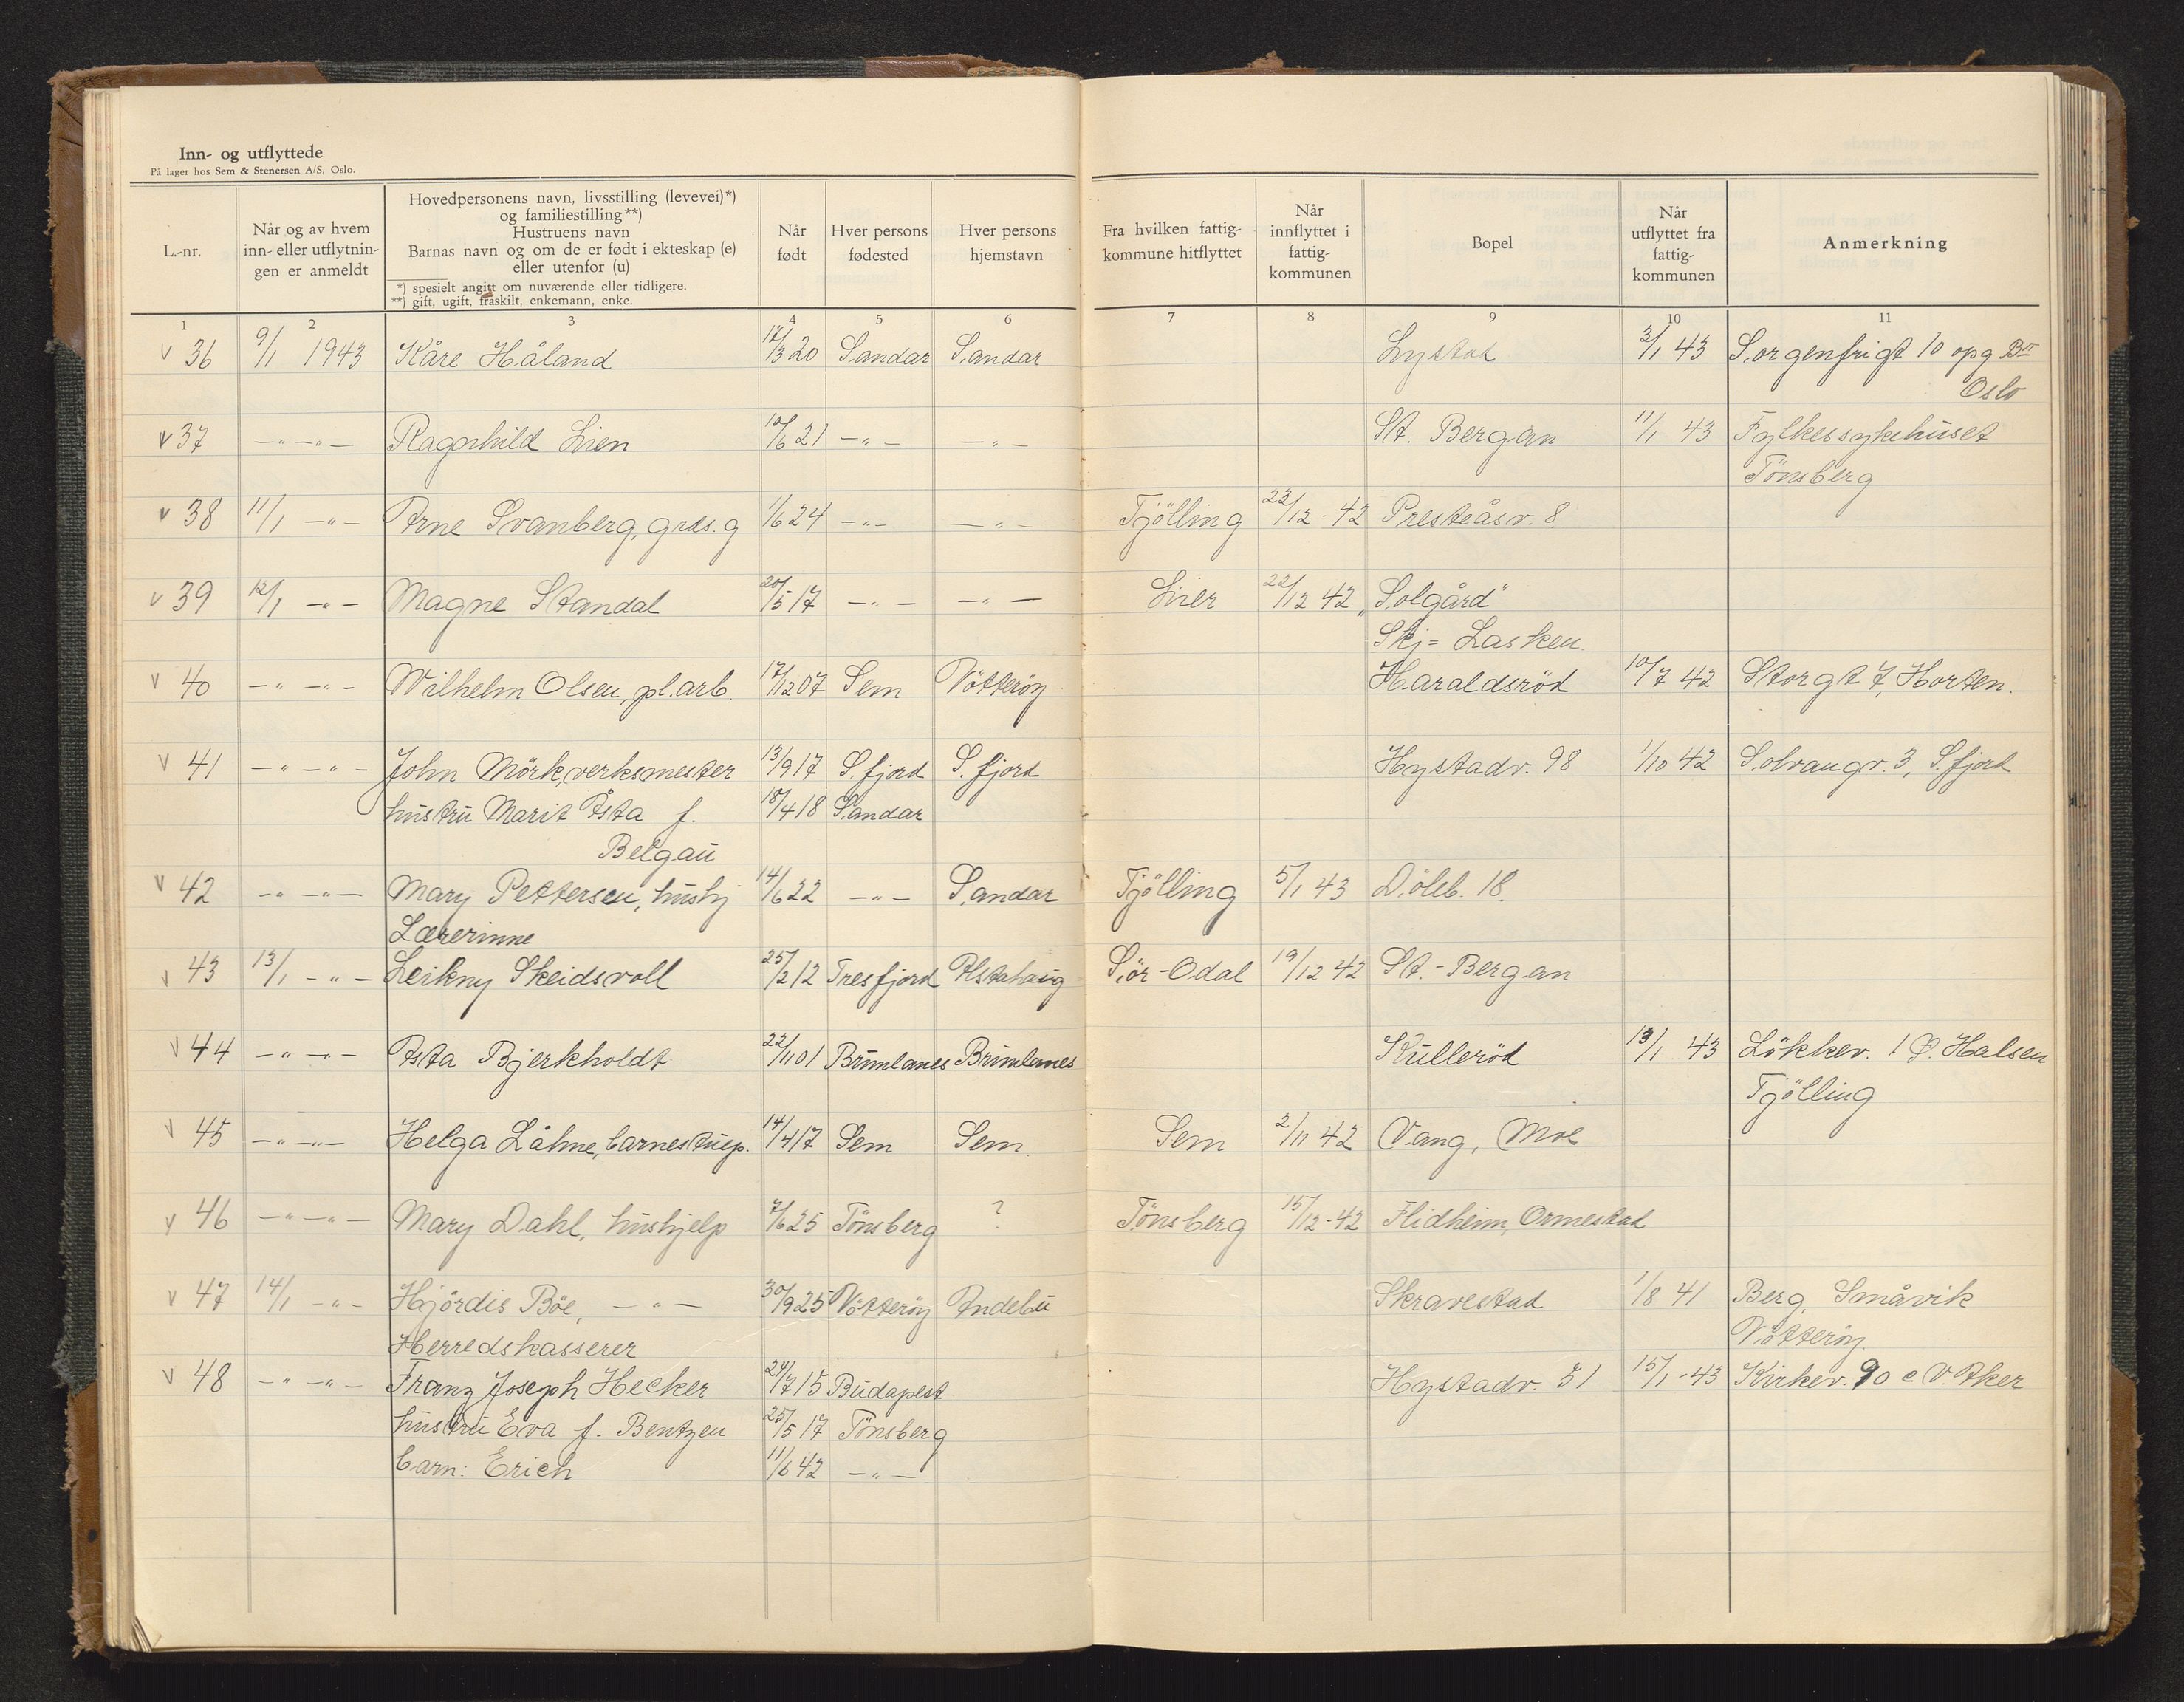 Inn- og utflyttede
På lager hos Sem & Stenersen A/S, Oslo.
L.-nr.
Når og av hvem
inn- eller utflytnin-
gen er anmeldt
Hovedpersonens navn, livsstilling (levevei)*)
og familiestilling**)
Hustruens navn
Barnas navn og om de er født i ekteskap (e)
eller utenfor (u)
*) spesielt angitt om nuværende eller tidligere.
**) gift, ugift, fraskilt, enkemann, enke.
Når
født
Hver persons
fødested
Hver persons
hjemstavn
Fra hvilken fattig-
kommune hitflyttet
Når
innflyttet i
fattig-
kommunen
Bopel
Når
utflyttet fra
fattig-
kommunen
Anmerkning
1 2 3 4 5 6 7 8 9 10 11
v 36 9/1 1943 Kåre Håland 17/3 20 Sandar Sandar Lystad 3/1 43 Sorgenfrigt 10 opg B
Oslo
v 37 -"- -"- Ragnhild Lien 10/6 21 -"- -"- St. Bergan 11/1 43 Fylkessykehuset
Tönsberg
v 38 11/1 -"- Arne Svanberg, grds.g 1/6 24 -"- -"- Tjölling 23/12-42 Presteåsv. 8
v 39 12/1 -"- Magne Standal 20/5 17 -"- -"- Lier 22/12 42 „Solgård"
Skj= Lasken
v 40 -"- -"- Wilhelm Olsen, pl.arb. 17/12 07 Sem Nötteröy Haraldsröd 10/7 42 Storgt 7, Horten.
v 41 -"- -"- John Mörk, verksmester 13/9 17 S.fjord S.fjord Hystadv. 98 1/10 42 Solvangv. 3, S.fjord
hustru Marit Åsta f. 18/4 18 Sandar
Belgau
v 42 -"- -"- Mary Pettersen, hushj 14/6 22 -"- Sandar Tjölling 5/1 43 Döleb. 18.
Lærerinne
v 43 13/1 -"- Leikny Skeidsvoll 25/2 12 Tresfjord Alstahaug Sör-Odal 19/12 42 St.-Bergan
v 44 -"- -"- Asta Bjerkholdt 22/11 01 Brunlanes Brunlanes Kulleröd 13/1 43 Lökkev. 1 P. Halsen
Tjölling
v 45 -"- -"- Helga Låhne, barnestuep. 14/4 17 Sem Sem Sem 2/11 42 Vang, Moe
v 46 -"- -"- Mary Dahl, hushjelp 7/6 25 Tönsberg ? Tönsberg 15/12-42 Flidheim, Ormestad
v 47 14/1 -"- Hjördis Böe, -"- 30/9 25 Nötteröy Andebu Skravestad 1/8 41 Berg, Småvik
Nötteröy
Herredskasserer
v 48 -"- -"- Franz Joseph Hecker 24/7 15 Budapest Hystadv. 51 15/1-43 Kirkev. 90 c V. Aker
hustru Eva f. Bentzen 25/5 17 Tönsberg
barn: Erich 11/6 42 -"-